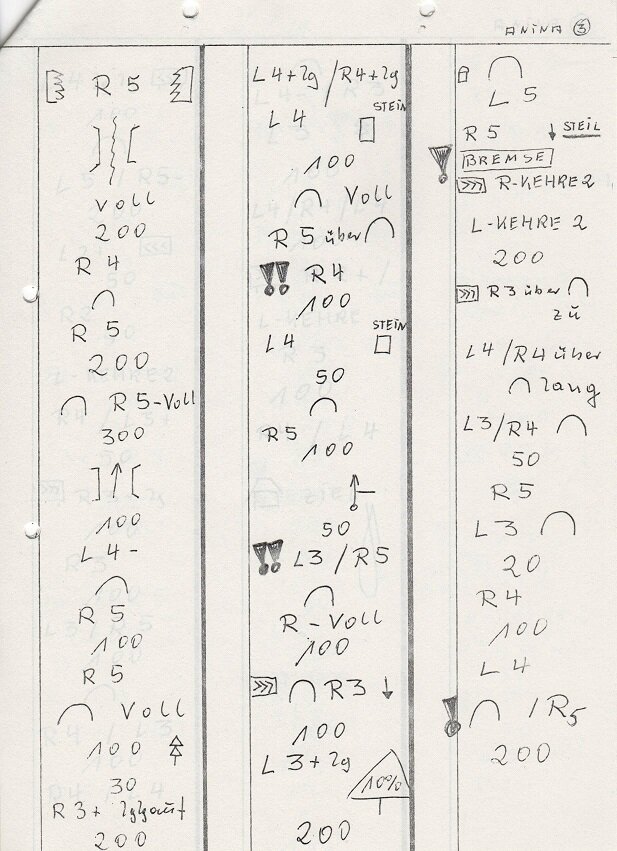 ANINA ③
R 5
VOLL
200
R 4
R 5
200
R 5-VOLL
300
100
L 4 -
R 5
100
R 5
VOLL
100
30
R 3 +
200
L4+2g /R4+2g
L 4 STEIN
100
VOLL
R 5 über
!! R4
100
L4 STEIN
50
R5
100
50
!! L3 / R5
R - VOLL
100
R3 ↓
100
L 3 + 2g
10%
200
L 5
R 5 ↓ STEIL
! BREMSE
>>> R-KEHRE 2
L-KEHRE 2
200
>>> R3 über
zu
L4 /R4 über
lang
L3/R4
50
R5
L 3
20
R4
100
L 4
! / R5
200